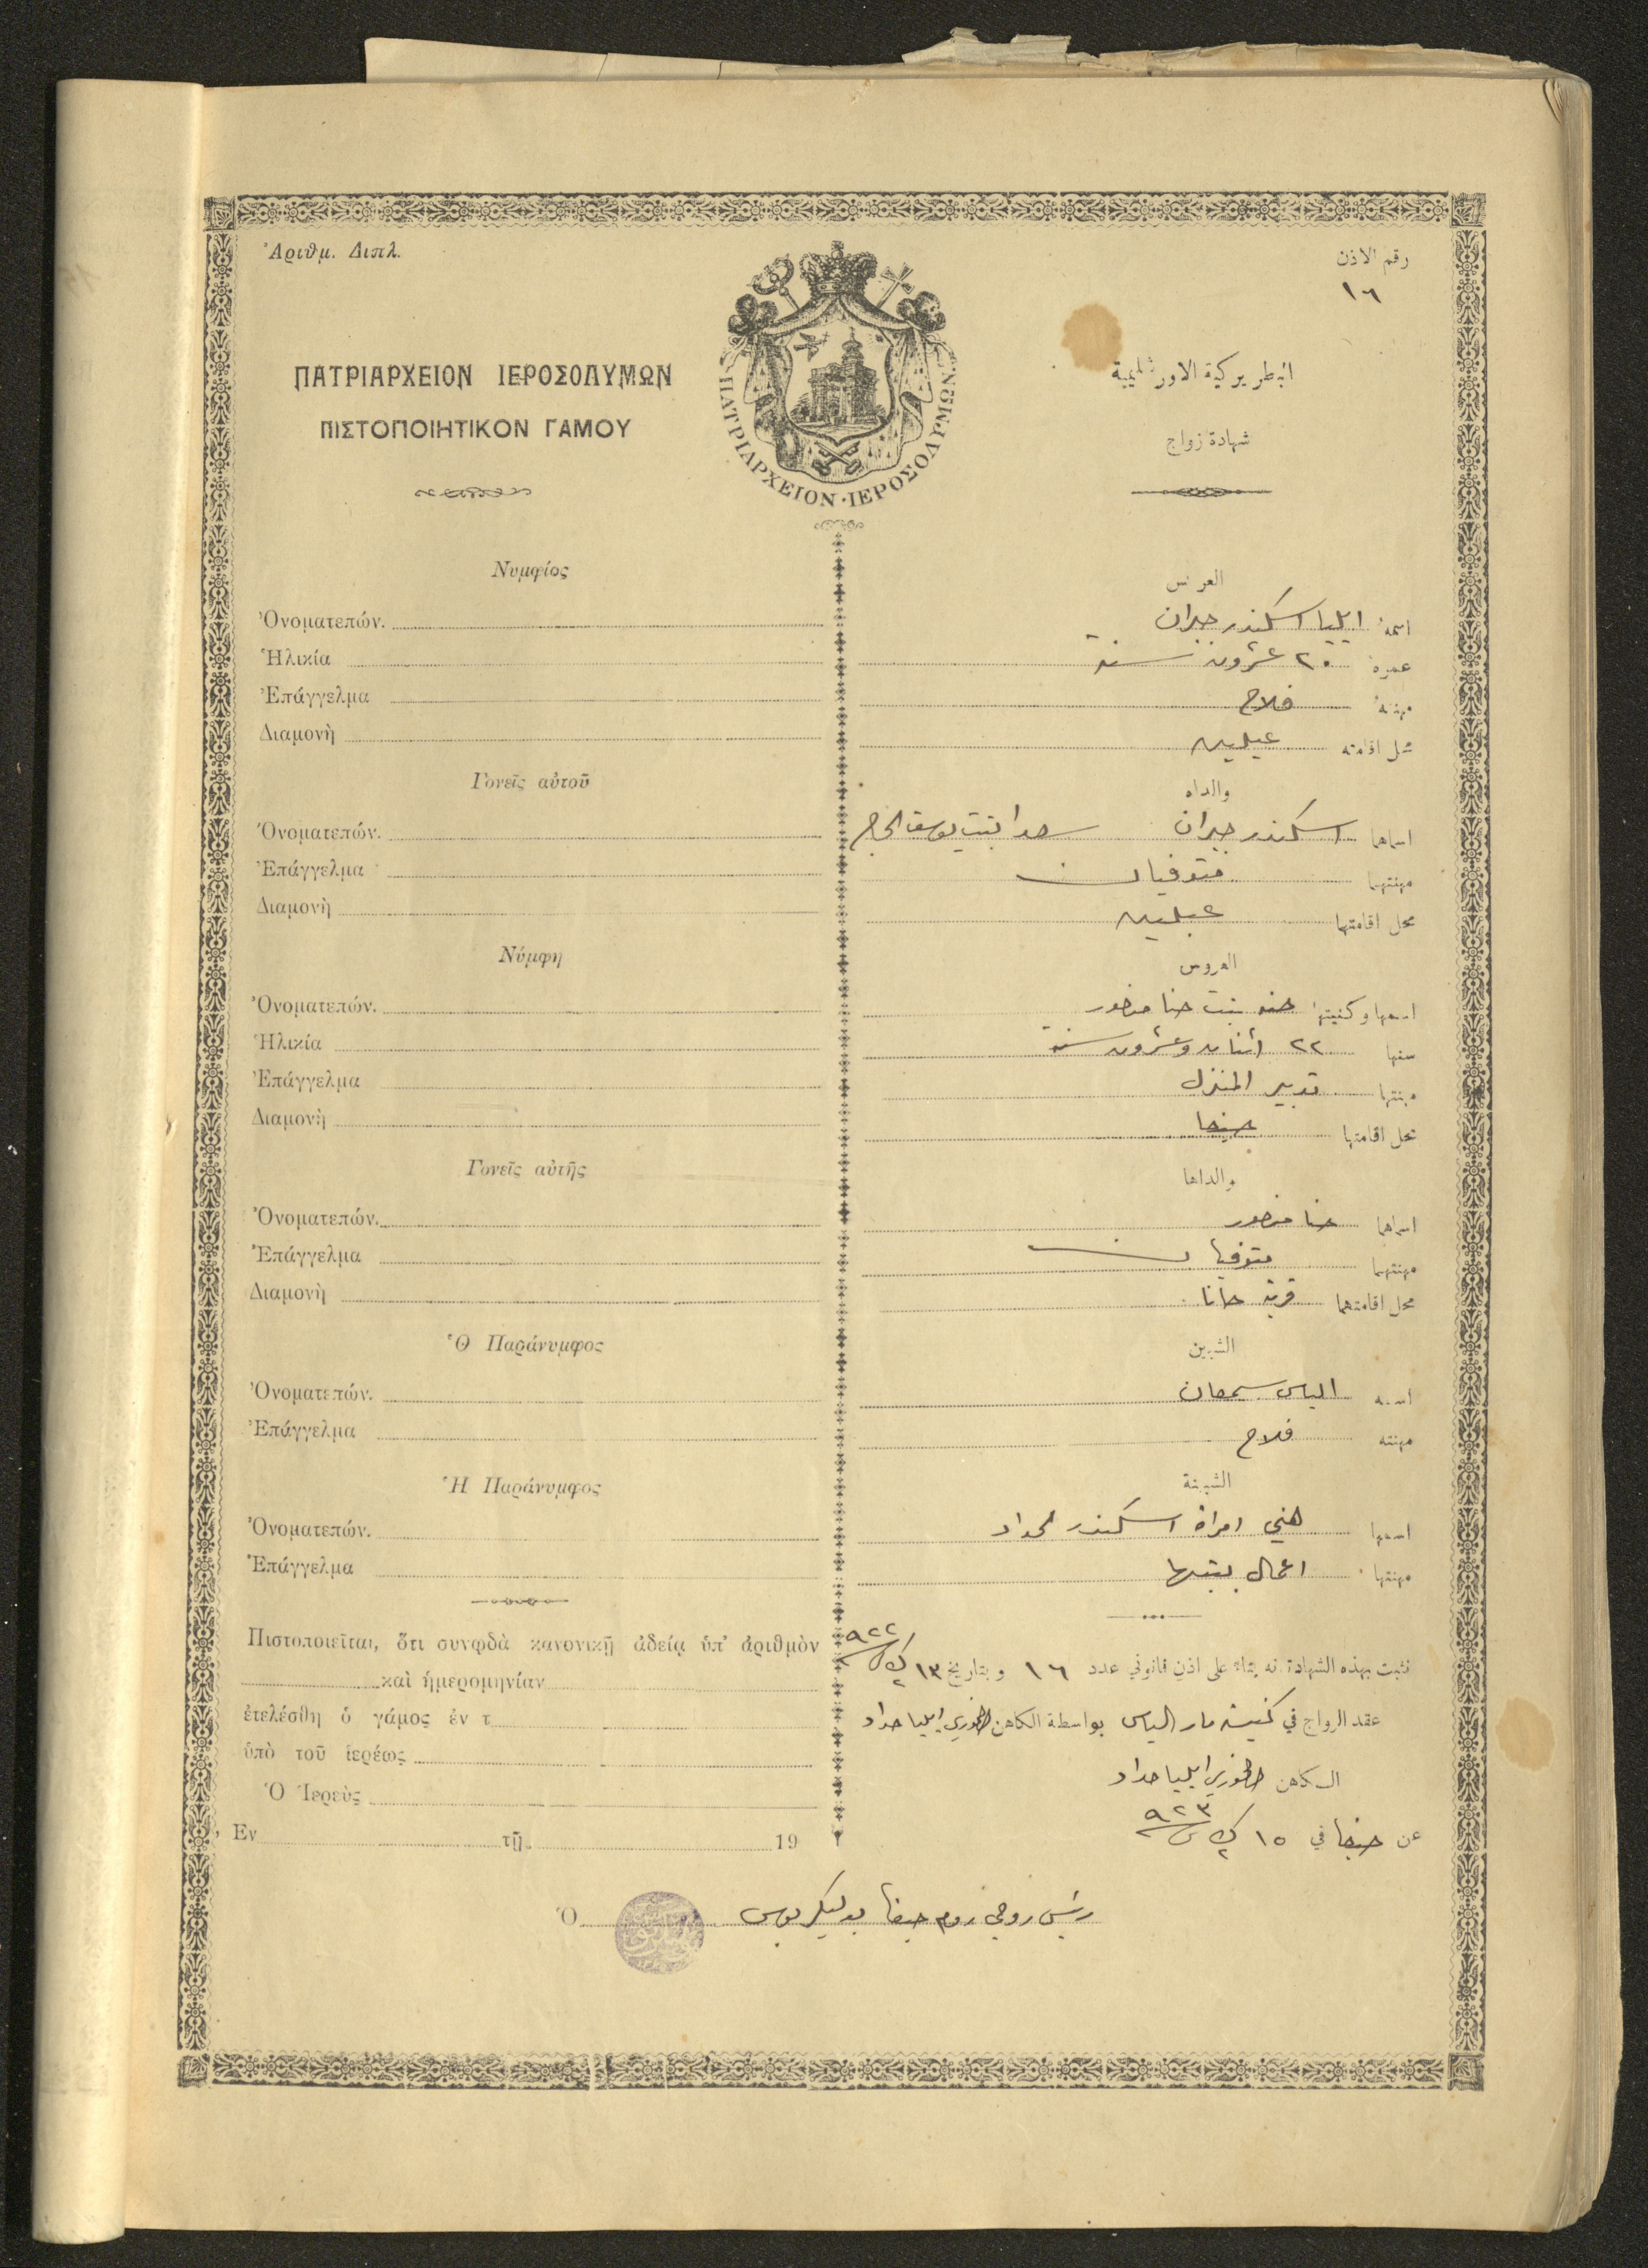 Ἀριθμ. Διπλ.
رقم الاذن
١٦
ΠΑΤΡΙΑΡΧΕΙΟΝ ΙΕΡΟΣΟΛΥΜΩΝ
ΠΙΣΤΟΠΟΙΗΤΙΚΟΝ ΓΑΜΟΥ
ΠΑΤΡΙΑΡΧΕΙΟΝ · ΙΕΡΟΣΟΛΥΜΩΝ
البطريركية الاورشليمية
شهادة زواج
Νυμφίος
Ὀνοματεπών.
Ἡλικία
Ἐπάγγελμα
Διαμονὴ
Γονεῖς αὐτοῦ
Ὀνοματεπών.
Ἐπάγγελμα
Διαμονὴ
Νύμφη
Ὀνοματεπών.
Ἡλικία
Ἐπάγγελμα
Διαμονὴ
Γονεῖς αὐτῆς
Ὀνοματεπών.
Ἐπάγγελμα
Διαμονὴ
Ὁ Παράνυμφος
Ὀνοματεπών.
Ἐπάγγελμα
Ἡ Παράνυμφος
Ὀνοματεπών.
Ἐπάγγελμα
Πιστοποιεῖται, ὅτι συνῳδὰ κανονικῇ ἀδείᾳ ὑπ' ἀριθμὸν
καὶ ἡμερομηνίαν
ἐτελέσθη ὁ γάμος ἐν τ
ὑπὸ τοῦ ἱερέως
Ὁ Ἱερεὺς
Ἐν τῇ 19
Ὁ
العريس
اسمه ايليا اسكندر جبران
عمره ٢٠ عشرون سنة
مهنته فلاح
محل اقامته عبلين
والداه
اسماهما اسكندر جبران بنت يوسف الحاج
مهنتهما متوفيان
محل اقامتهما عبلين
العروس
اسمها وكنيتها حنه بنت حنا منصور
سنها ٢٢ اثنان وعشرون سنة
مهنتها تدبير المنزل
محل اقامتها حيفا
والداها
اسماهما حنا منصور
مهنتهما متوفيان
محل اقامتهما قرية
الشبين
اسمه الياس سمعان
مهنته فلاح
الشبينة
اسمها هني امراة اسكندر الحداد
مهنتها اعمال بيتها
نثبت بهذه الشهادة انه بناء على اذن قانوني عدد ١٦ وبتاريخ ١٣ ك٢ ٩٢٢
عقد الزواج في كنيسة مار الياس بواسطة الكاهن الخوري ايليا حداد
الكاهن الخوري ايليا حداد
عن حيفا في ١٥ ك٢ ٩٢٣
رئيس روحي روم حيفا